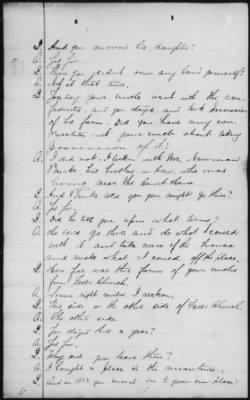 Q. And you married his daughter?
A. Yes sir.
Q. Then you didn't own any land yourself?
A. Not at that time.
Q. You say your uncle went with the con-
federates, and you staid and took possession
of his farm. Did you have any con-
versation with your uncle about taking
possession of it?
A. I did not. I talked with Mr. Newman
Burke his brother in law, who was
living near the Court House.
Q. And Burke told you you might go there?
A. Yes sir.
Q. Did he tell you upon what terms?
A. He said go there and do what I could
with it and take care of the house
and make what I could off the place.
Q. How far was this farm of your uncle's
from Falls Church?
A. Some eight miles I reckon.
Q. This side or the other side of Falls Church?
A. The other side.
Q. You staid there a year?
A. Yes sir.
Q. Why did you leave then?
A. I bought a place in the meantime.
Q. And in 1862 you moved on to your own place?